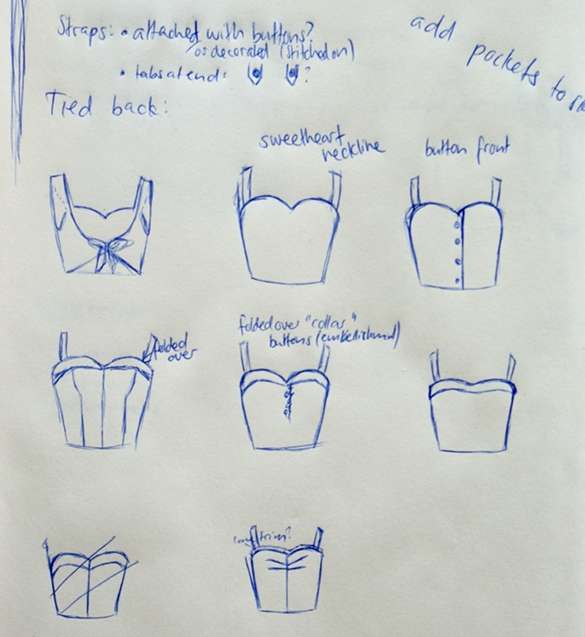 Straps: • attached with buttons?
or decorated (stitched on)
• tabs at end: ?
add pockets to
Tied back:
sweetheart
neckline
button front
folded
over
folded over "collar"
buttons (embellishment)
trim?